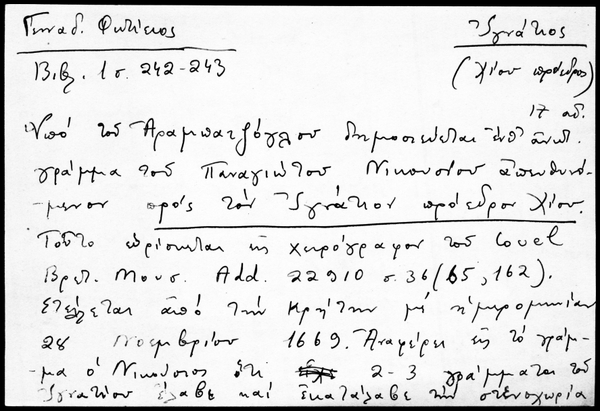 Γενναδ. Φυτίειος Ἰγνάτιος
Βιβλ. 1 σ. 242-243 (Χίου πρόεδρος)
17 αἰ.
Ὑπό τοῦ Ἀραμπατζόγλου δημοσιεύεται ἐνθ' ἀνωτ.
γράμμα τοῦ Παναγιώτου Νικουσίου ἀπευθυνό-
-μενον πρός τόν Ἰγνάτιον πρόεδρον Χίου.
Τοῦτο εὑρίσκεται εἰς χειρόγραφον τοῦ Covel
Βρετ. Μουσ. Add. 22910 σ. 36 (65, 162).
Στέλλεται ἀπό τήν Κρήτην μέ ἡμερομηνίαν
28 Νοεμβρίου 1669. Ἀναφέρει εἰς τό γράμ-
-μα ὁ Νικούσιος ὅτι 2-3 γράμματα τοῦ
Ἰγνατίου ἔλαβε καί ἐκατάλαβε τήν στενοχωρία